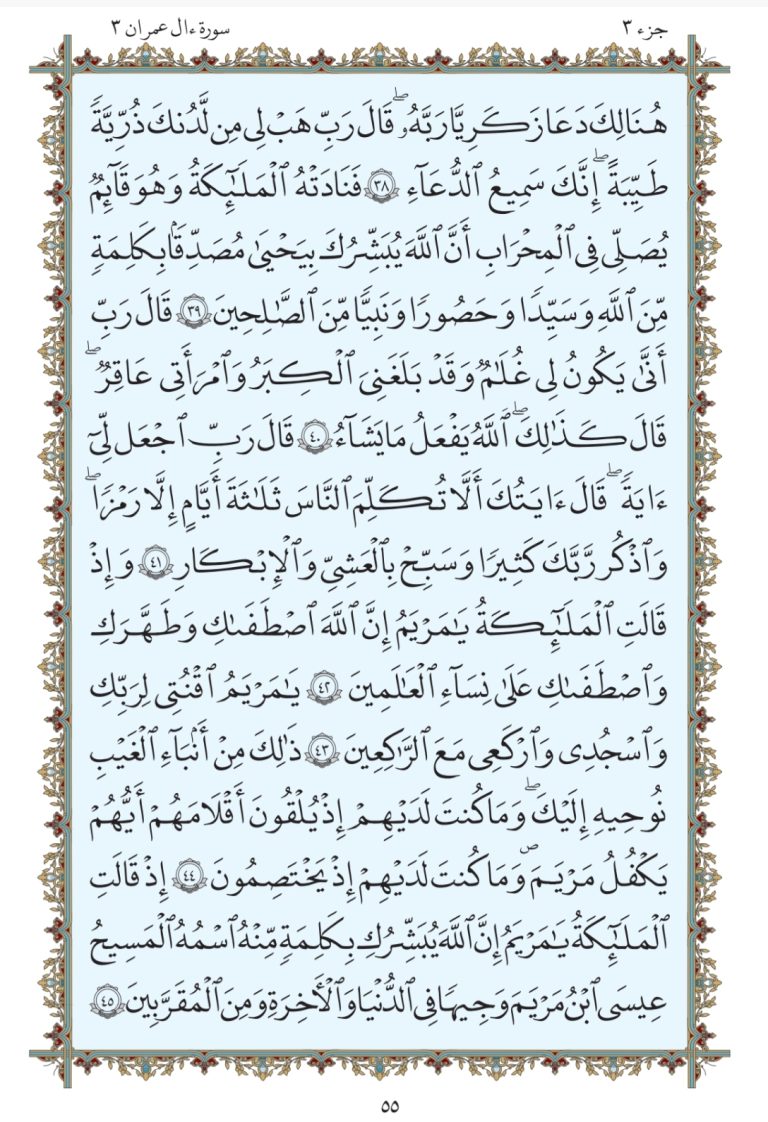 جزء ٣
سورة ءال عمران ٣
هُنَالِكَ دَعَا زَكَرِيَّا رَبَّهُۥۖ قَالَ رَبِّ هَبْ لِى مِن لَّدُنكَ ذُرِّيَّةً
طَيِّبَةًۖ إِنَّكَ سَمِيعُ ٱلدُّعَآءِ ٣٨ فَنَادَتْهُ ٱلْمَلَٰٓئِكَةُ وَهُوَ قَآئِمٌ
يُصَلِّى فِى ٱلْمِحْرَابِ أَنَّ ٱللَّهَ يُبَشِّرُكَ بِيَحْيَىٰ مُصَدِّقًۢا بِكَلِمَةٍ
مِّنَ ٱللَّهِ وَسَيِّدًا وَحَصُورًا وَنَبِيًّا مِّنَ ٱلصَّٰلِحِينَ ٣٩ قَالَ رَبِّ
أَنَّىٰ يَكُونُ لِى غُلَٰمٌ وَقَدْ بَلَغَنِىَ ٱلْكِبَرُ وَٱمْرَأَتِى عَاقِرٌۖ
قَالَ كَذَٰلِكَۖ ٱللَّهُ يَفْعَلُ مَا يَشَآءُ ٤٠ قَالَ رَبِّ ٱجْعَل لِّىٓ
ءَايَةًۖ قَالَ ءَايَتُكَ أَلَّا تُكَلِّمَ ٱلنَّاسَ ثَلَٰثَةَ أَيَّامٍ إِلَّا رَمْزًاۗ
وَٱذْكُر رَّبَّكَ كَثِيرًا وَسَبِّحْ بِٱلْعَشِىِّ وَٱلْإِبْكَٰرِ ٤١ وَإِذْ
قَالَتِ ٱلْمَلَٰٓئِكَةُ يَٰمَرْيَمُ إِنَّ ٱللَّهَ ٱصْطَفَىٰكِ وَطَهَّرَكِ
وَٱصْطَفَىٰكِ عَلَىٰ نِسَآءِ ٱلْعَٰلَمِينَ ٤٢ يَٰمَرْيَمُ ٱقْنُتِى لِرَبِّكِ
وَٱسْجُدِى وَٱرْكَعِى مَعَ ٱلرَّٰكِعِينَ ٤٣ ذَٰلِكَ مِنْ أَنۢبَآءِ ٱلْغَيْبِ
نُوحِيهِ إِلَيْكَۖ وَمَا كُنتَ لَدَيْهِمْ إِذْ يُلْقُونَ أَقْلَٰمَهُمْ أَيُّهُمْ
يَكْفُلُ مَرْيَمَۖ وَمَا كُنتَ لَدَيْهِمْ إِذْ يَخْتَصِمُونَ ٤٤ إِذْ قَالَتِ
ٱلْمَلَٰٓئِكَةُ يَٰمَرْيَمُ إِنَّ ٱللَّهَ يُبَشِّرُكِ بِكَلِمَةٍ مِّنْهُ ٱسْمُهُ ٱلْمَسِيحُ
عِيسَى ٱبْنُ مَرْيَمَ وَجِيهًا فِى ٱلدُّنْيَا وَٱلْءَاخِرَةِ وَمِنَ ٱلْمُقَرَّبِينَ ٤٥
٥٥